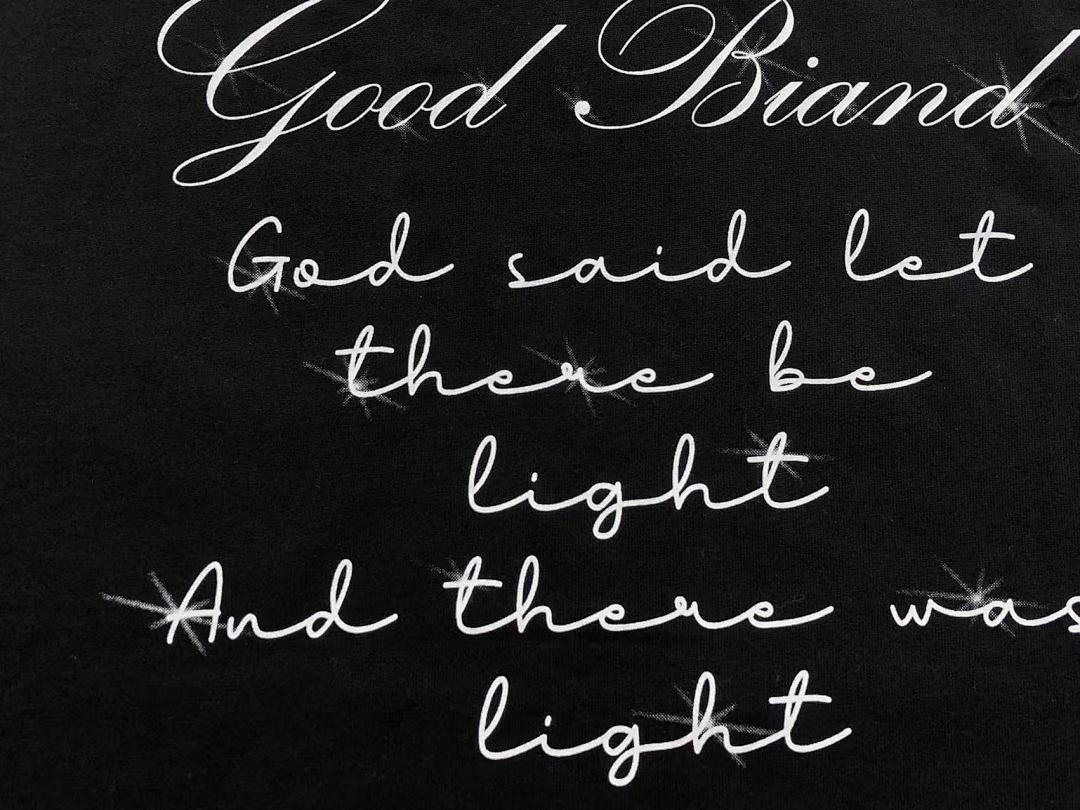 Good Biand
God said let
there be
light
And there was
light